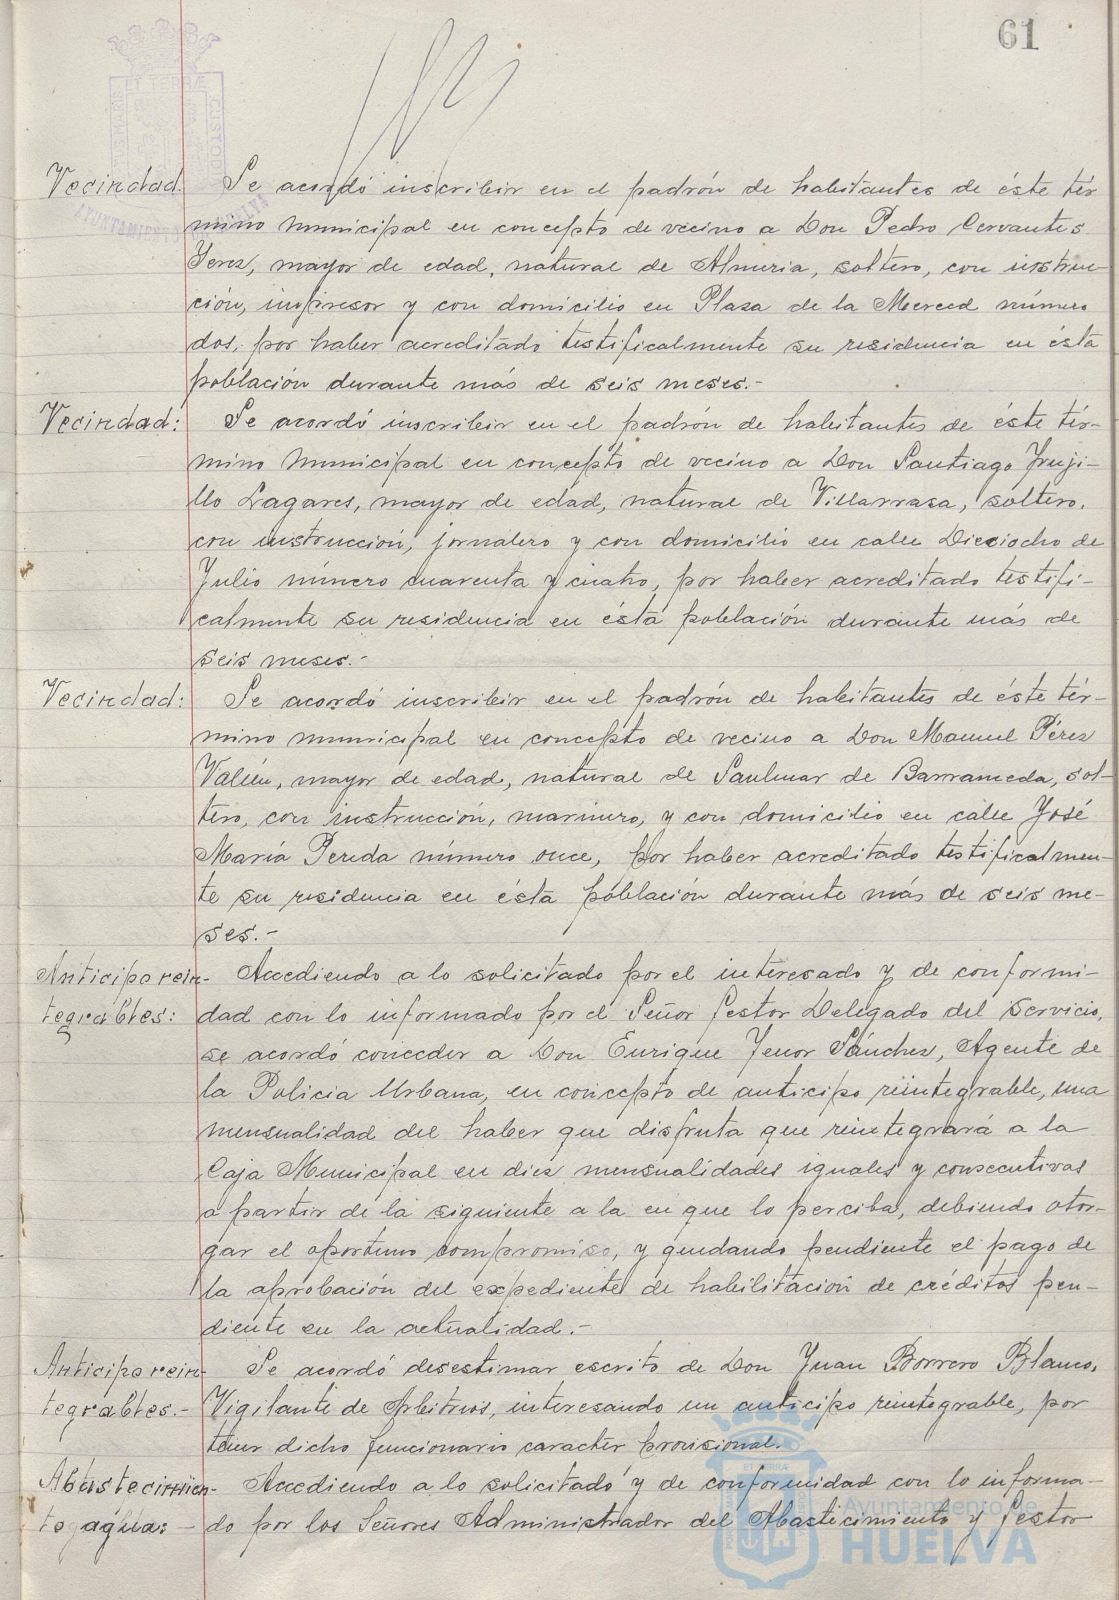 61
Vecindad. Se acordó inscribir en el padrón de habitantes de éste tér
mino municipal en concepto de vecino a Don Pedro Cervantes
Jerez, mayor de edad, natural de Almeria, soltero, con instruc-
ción, impresor y con domicilio en Plaza de la Merced número
dos, por haber acreditado testificalmente su residencia en ésta
población durante más de seis meses.-
Vecindad: Se acordó inscribir en el padrón de habitantes de éste tér-
mino municipal en concepto de vecino a Don Santiago Truji-
llo Lagares, mayor de edad, natural de Villarrasa, soltero,
con instrucción, jornalero y con domicilio en calle Dieciocho de
Julio número cuarenta y cuatro, por haber acreditado testifi-
calmente su residencia en ésta población durante más de
seis meses.-
Vecindad: Se acordó inscribir en el padrón de habitantes de éste tér-
mino municipal en concepto de vecino a Don Manuel Pérez
mayor de edad, natural de Sanlucar de Barrameda, sol-
tero, con instrucción, marinero, y con domicilio en calle José
María Pereda número once, por haber acreditado testificalmen-
te su residencia en ésta población durante más de seis me-
ses.-
Anticipo rein- Accediendo a lo solicitado por el interesado y de conformi-
tegrables: dad con lo informado por el Señor Gestor Delegado del servicio,
se acordó conceder a Don Enrique Tenor Sánchez, Agente de
la Policia Urbana, en concepto de anticipo reintegrable, una
mensualidad del haber que disfruta que reintegrará a la
Caja Municipal en diez mensualidades iguales y consecutivas
a partir de la siguiente a la en que lo perciba, debiendo otor-
gar el oportuno compromiso, y quedando pendiente el pago de
la aprobación del expediente de habilitación de créditos pen-
diente en la actualidad.-
Anticipo rein- Se acordó desestimar escrito de Don Juan Borrero Blanco,
tegrables.- Vigilante de Arbitrios, interesando un anticipo reintegrable, por
tener dicho funcionario caracter provisional.
Abastecimien- Accediendo a lo solicitado y de conformidad con lo informa-
to agua: - do por los Señores Administrador del Abastecimiento y Gestor
Ayuntamiento de
HUELVA